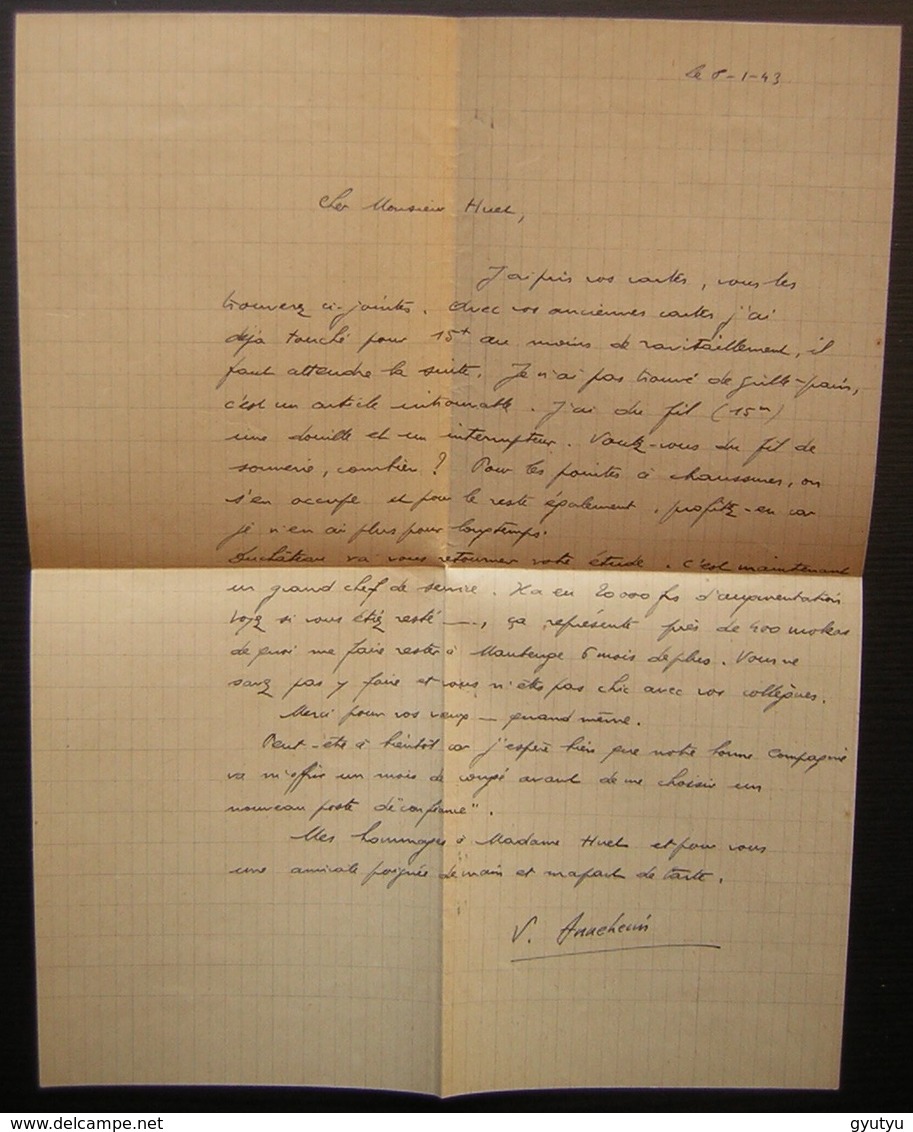 le 8-1-43
Cher Monsieur Huet,
J'ai pris vos cartes, vous les
trouverez ci-jointes. Avec vos anciennes cartes j'ai
déjà touché pour 15t au moins de ravitaillement, il
faut attendre la suite. Je n'ai pas trouvé de grille-pain,
c'est un article introuvable. J'ai du fil (15m)
une douille et un interrupteur. Voulez-vous du fil de
sonnerie, combien ? Pour les pointes à chaussures, on
s'en occupe et pour le reste également, profitez-en car
je n'en ai plus pour longtemps.
Duchâteau va vous retourner votre étude. C'est maintenant
un grand chef de service. Il a eu 20 000 frs d'augmentation
voyez si vous étiez resté —, ça représente près de 400
de quoi me faire rester à Maubeuge 6 mois de plus. Vous ne
savez pas y faire et vous n'êtes pas chic avec vos collègues.
Merci pour vos vœux — quand même.
Peut-être à bientôt car j'espère bien que notre bonne Compagnie
va m'offrir un mois de congé avant de me choisir un
nouveau poste de "confiance".
Mes hommages à Madame Huet et pour vous
une amicale poignée de main et ma part de tarte.
V.
gyutyu
delcampe.net